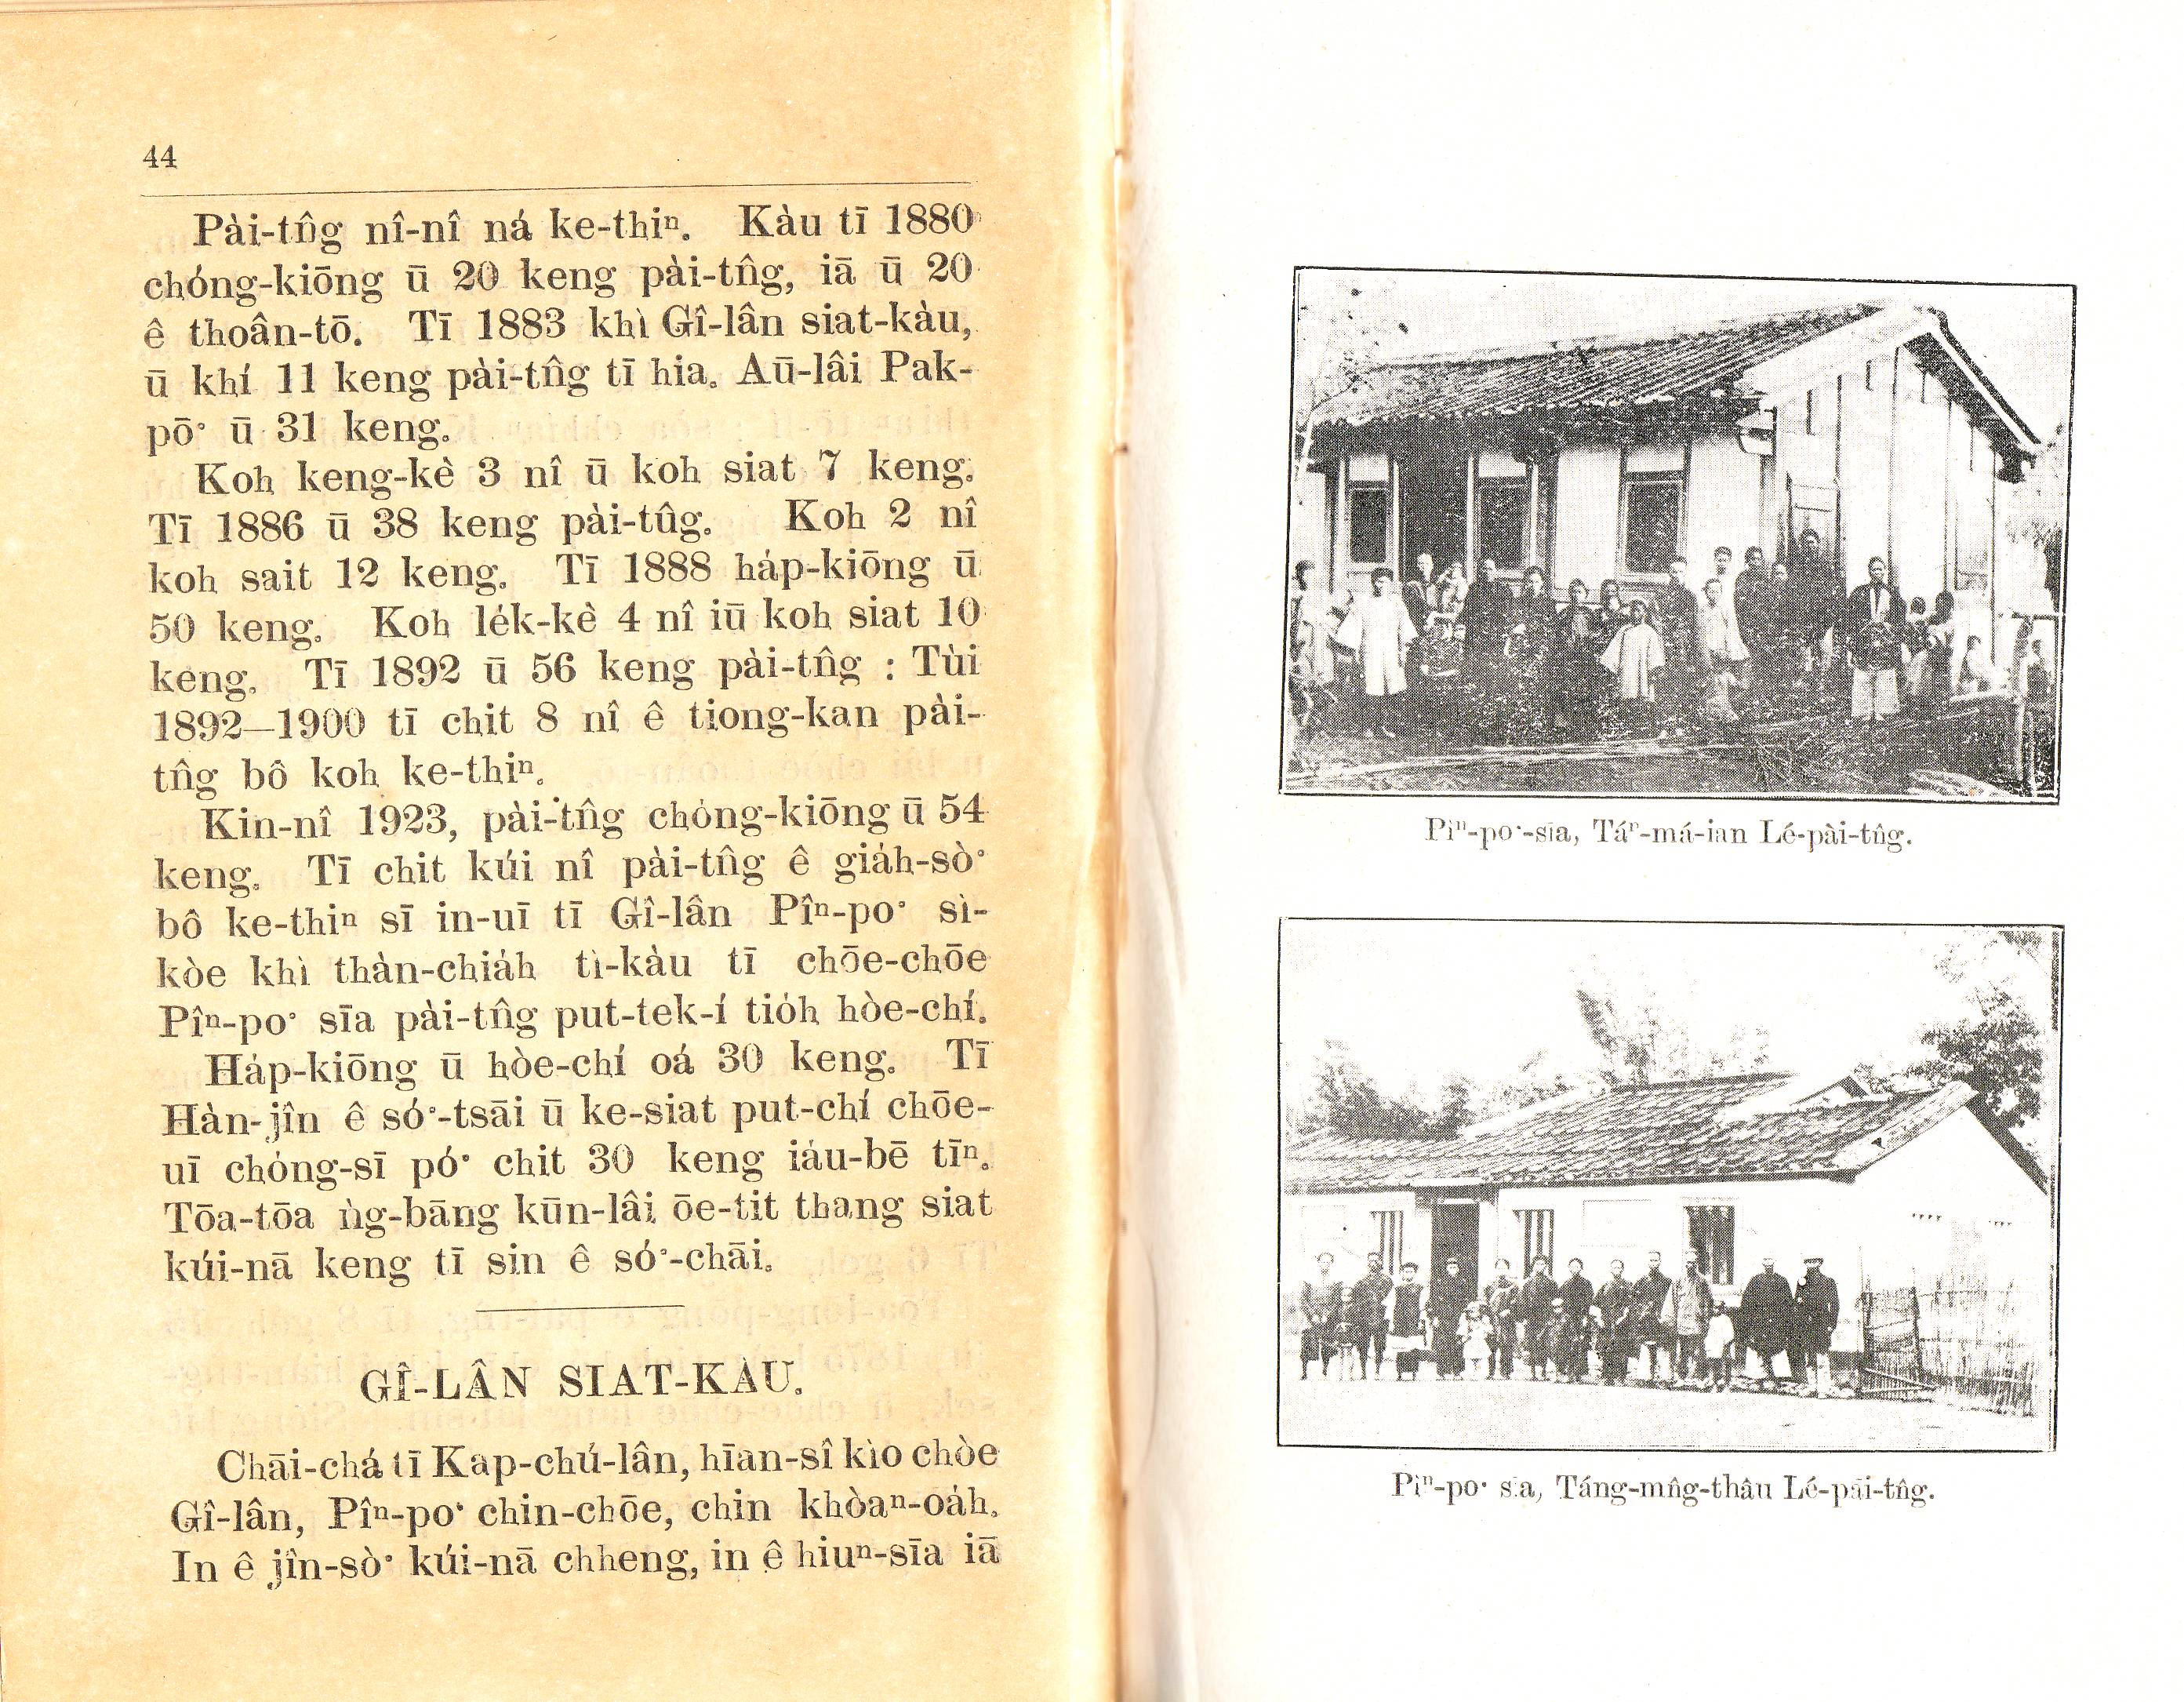 44
Pài-tn̂g nî-nî ná ke-thiⁿ. Kàu tī 1880
chóng-kiōng ū 20 keng pài-tn̂g, iā ū 20
ê thoân-tō. Tī 1883 khì Gî-lân siat-kàu,
ū khí 11 keng pài-tn̂g tī hia. Aū-lâi Pak-
pō͘ ū 31 keng.
Koh keng-kè 3 nî ū koh siat 7 keng.
Tī 1886 ū 38 keng pài-tûg. Koh 2 nî
koh sait 12 keng. Tī 1888 ha̍p-kiōng ū
50 keng. Koh le̍k-kè 4 nî iū koh siat 10
keng. Tī 1892 ū 56 keng pài-tn̂g : Tùi
1892—1900 tī chit 8 nî ê tiong-kan pài-
tn̂g bô koh ke-thiⁿ.
Kin-nî 1923, pài-tn̂g chóng-kiōng ū 54
keng. Tī chit kúi nî pài-tn̂g ê gia̍h-sò͘
bô ke-thiⁿ sī in-uī tī Gî-lân Pîⁿ-po͘ sì-
kòe khì thàn-chia̍h tì-kàu tī chōe-chōe
Pîⁿ-po͘ sīa pài-tn̂g put-tek-í tio̍h hòe-chí.
Ha̍p-kiōng ū hòe-chí oá 30 keng. Tī
Hàn-jîn ê só͘-tsāi ū ke-siat put-chí chōe-
uī chóng-sī pó͘ chit 30 keng iáu-bē tīⁿ.
Tōa-tōa ǹg-bāng kūn-lâi ōe-tit thang siat
kúi-nā keng tī sin ê só͘-chāi.
GÎ-LÂN SIAT-KÀU.
Chāi-chá tī Kap-chú-lân, hīan-sî kìo chòe
Gî-lân, Pîⁿ-po͘ chin-chōe, chin khòaⁿ-oa̍h.
In ê jîn-sò͘ kúi-nā chheng, in ê hiuⁿ-sīa iā
Pîⁿ-po͘-sīa, Táⁿ-má-ian Lé-pài-tn̂g.
Pîⁿ-po͘ sīa, Táng-mn̂g-thâu Lé-pāi-tn̂g.